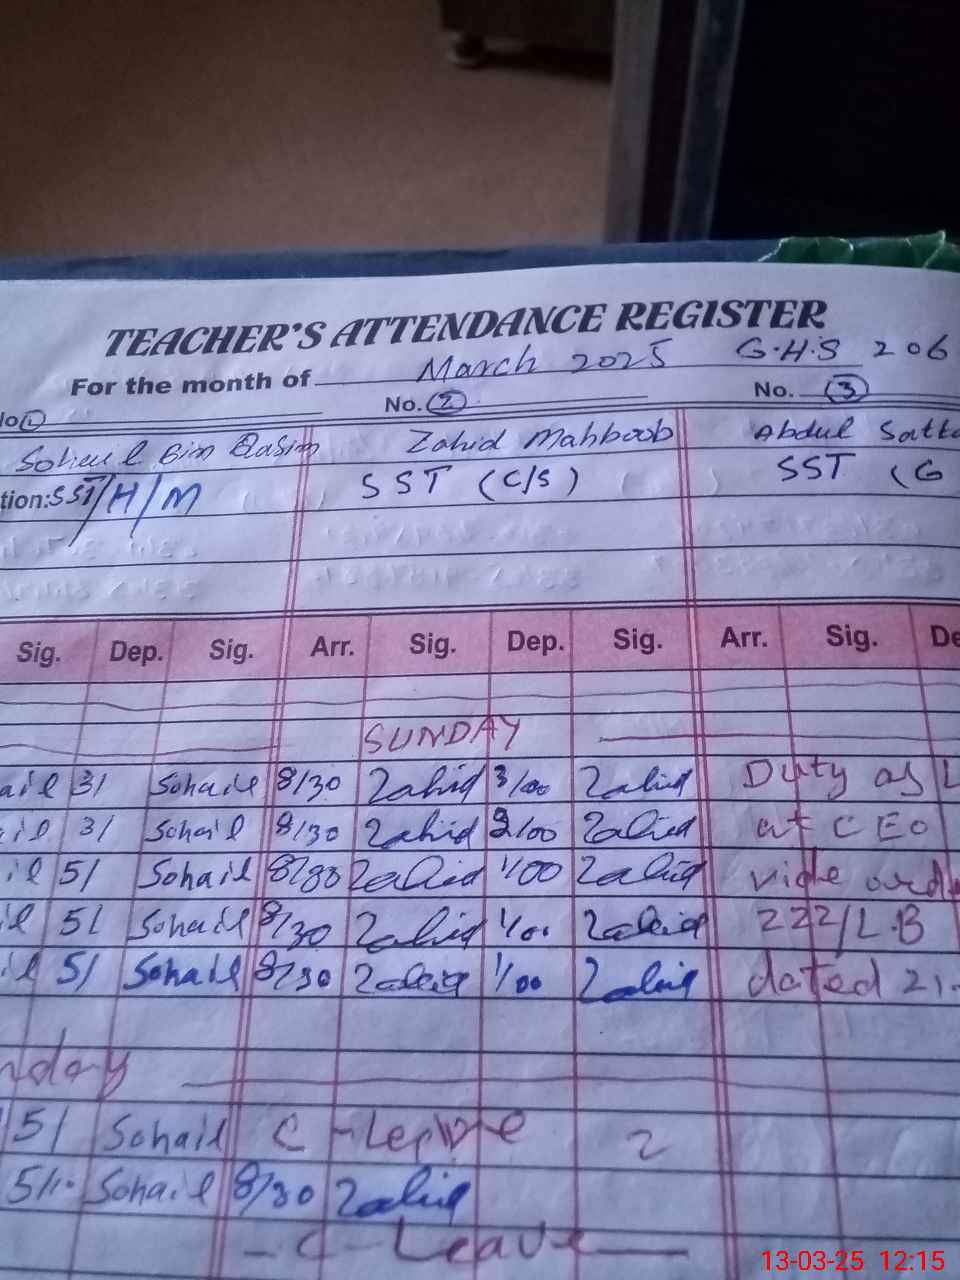 TEACHER'S ATTENDANCE REGISTER
For the month of March 2025 G.H.S 206
No 1 No. 2 No. 3
Bin Qasim Zahid Mahboob Abdul Satta
tion: SST/H/M SST (C/S) SST (G
Sig. Dep. Sig. Arr. Sig. Dep. Sig. Arr. Sig. De
SUNDAY
ail 3/ Sohail 8/30 Zahid 3/00 Zahid Duty as L
il 3/ Sohail 8/30 Zahid 3/00 Zahid at CEO
il 5/ Sohail 8/30 Zahid 1/00 Zahid vide ord
il 5/ Sohail 8/30 Zahid 1/00 Zahid 222/L.B
il 5/ Sohail 8/30 Zahid 1/00 Zahid dated 21.
nday
5/ Sohail C - Leave 2
5/ Sohail 8/30 Zahid
- C - Leave
13-03-25 12:15